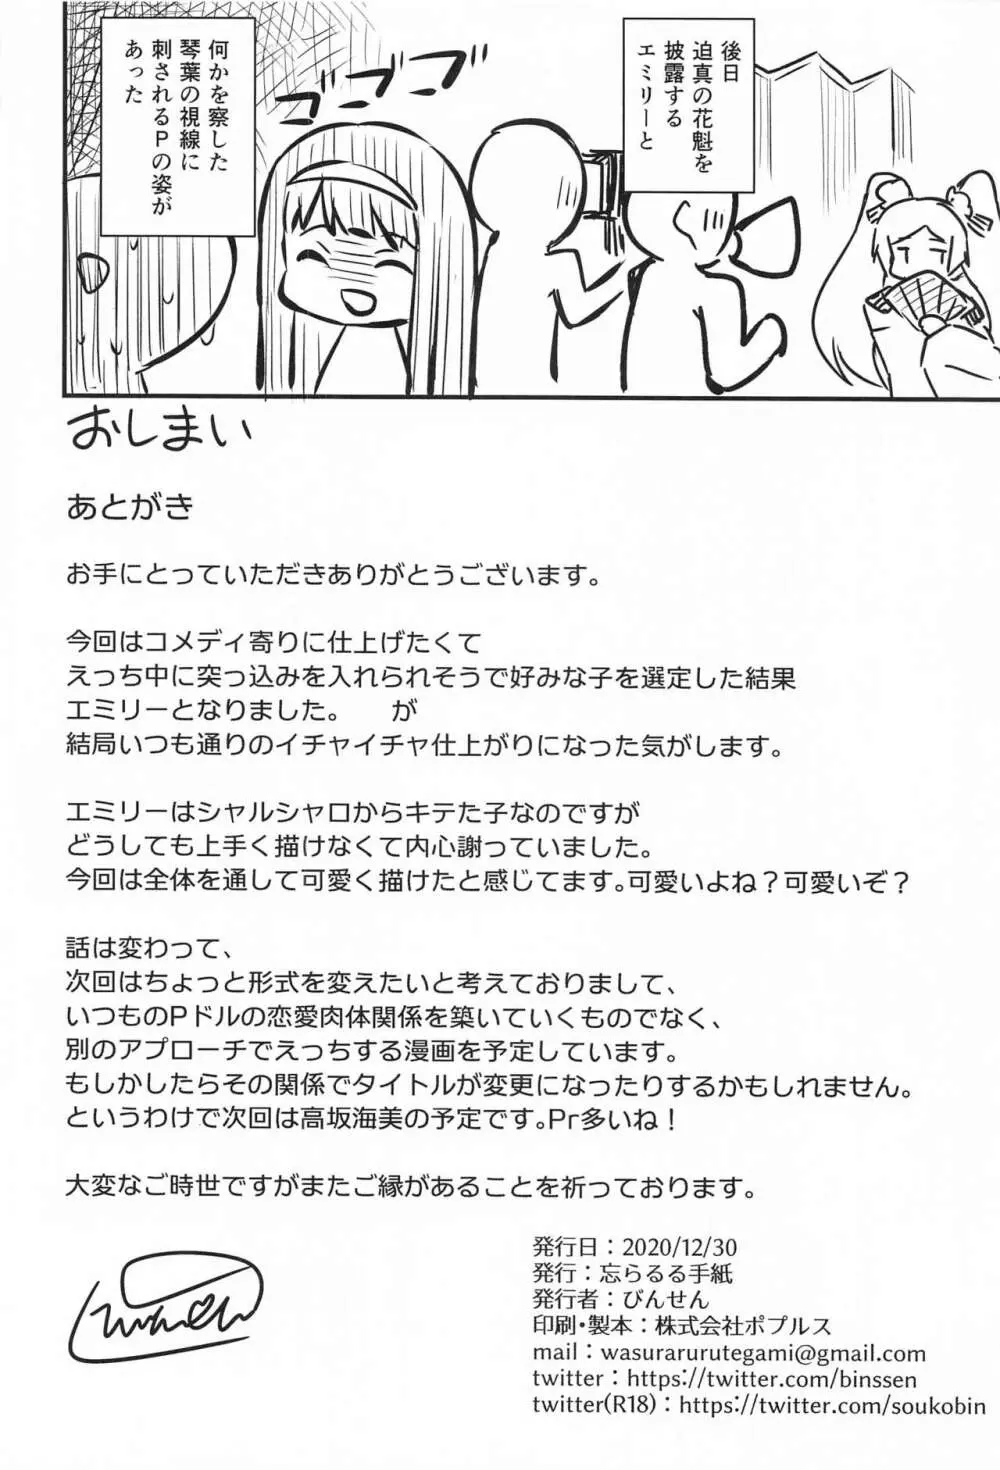 後日
迫真の花魁を
披露する
エミリーと
ゴゴゴ
何かを察した
琴葉の視線に
刺されるPの姿が
あった
おしまい
あとがき
お手にとっていただきありがとうございます。
今回はコメディ寄りに仕上げたくて
えっち中に突っ込みを入れられそうで好みな子を選定した結果
エミリーとなりました。　　が
結局いつも通りのイチャイチャ仕上がりになった気がします。
エミリーはシャルシャロからキテた子なのですが
どうしても上手く描けなくて内心謝っていました。
今回は全体を通して可愛く描けたと感じてます。可愛いよね？可愛いぞ？
話は変わって、
次回はちょっと形式を変えたいと考えておりまして、
いつものPドルの恋愛肉体関係を築いていくものでなく、
別のアプローチでえっちする漫画を予定しています。
もしかしたらその関係でタイトルが変更になったりするかもしれません。
というわけで次回は高坂海美の予定です。Pr多いね！
大変なご時世ですがまたご縁があることを祈っております。
発行日：2020/12/30
発行：忘らるる手紙
発行者：びんせん
印刷・製本：株式会社ポプルス
mail：wasurarurutegami@gmail.com
twitter：https://twitter.com/binssen
twitter(R18)：https://twitter.com/soukobin